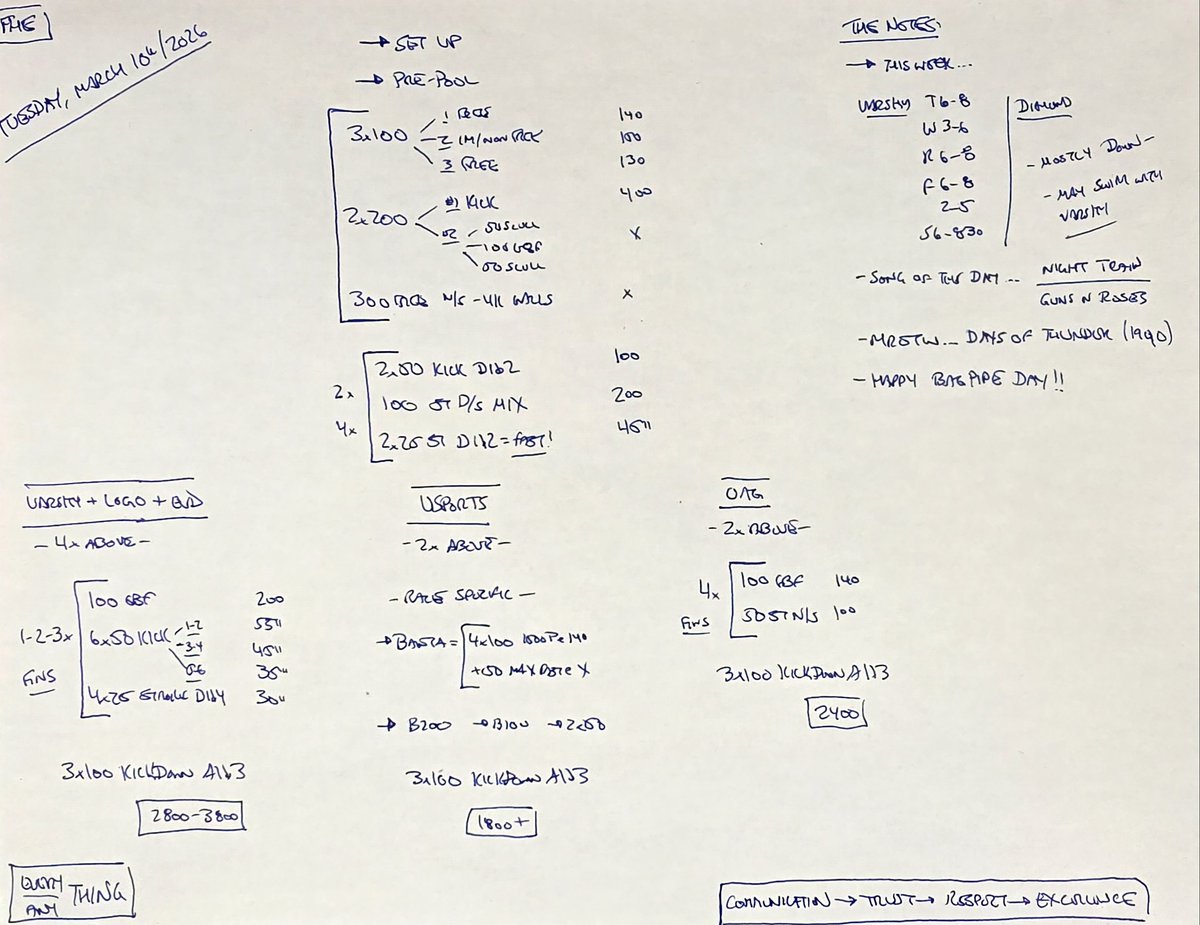 TUESDAY, MARCH 10th/2026
→ SET UP
→ PRE-POOL
3x100
1 RECS 140
2 IM/NON FREE 150
3 FREE 130
2x200
#1 KICK 400
#2 50 SCULL X
100 GBF
50 SCULL
300 N/S - 4K WALLS X
2x
4x
2x50 KICK D1D2 100
100 ST D/S MIX 200
2x25 ST D1D2 = FAST! 45"
THE NOTES:
→ THIS WEEK...
VARSITY T 6-8
W 3-6
R 6-8
F 6-8
2-5
S 6-830
DIAMOND
- MOSTLY DOWN -
- MAY SWIM WITH
VARSITY
- SONG OF THE DAY... NIGHT TRAIN
GUNS N ROSES
- MROTW... DAYS OF THUNDER (1990)
- HAPPY BAGPIPE DAY!!
VARSITY + LOGO +
- 4x ABOVE -
1-2-3x
FINS
100 GBF 200
6x50 KICK 1-2 55"
3-4 45"
5-6 35"
4x25 STROKE D1D4 30"
3x100 KICKDOWN A1D3
2800-3800
USPORTS
- 2x ABOVE -
- RACE SPECIFIC -
4x100 140
+50 MAX X
→ B200 → B100 → 2x50
3x100 KICKDOWN A1D3
1800+
OAG
- 2x ABOVE -
4x
FINS
100 GBF 140
50 ST N/S 100
3x100 KICKDOWN A1D3
2400
EVERY
ANY THING
COMMUNICATION → TRUST → RESPECT → EXCELLENCE